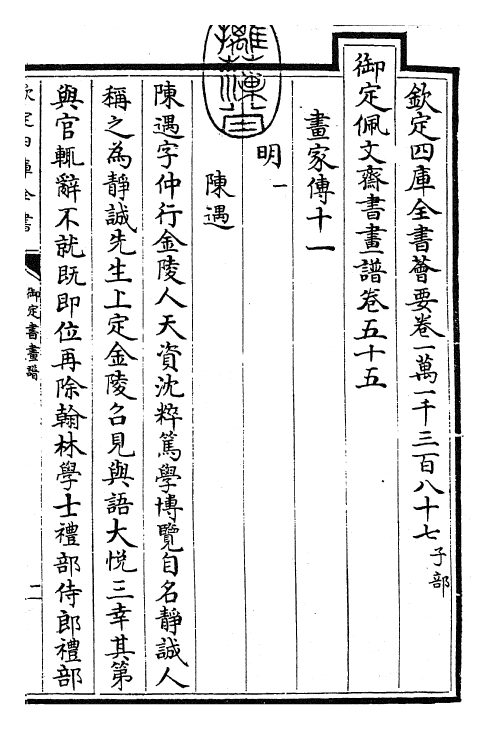 欽定四庫全書薈要卷一萬一千三百八十七子部
御定佩文齋書畫譜卷五十五
畫家傳十一
明一
陳遇
陳遇字仲行金陵人天資沈粹篤學博覽自名靜誠人
稱之為靜誠先生上定金陵召見與語大悅三幸其第
與官輒辭不就既即位再除翰林學士禮部侍郎禮部
欽定四庫全書
御定書畫譜
二